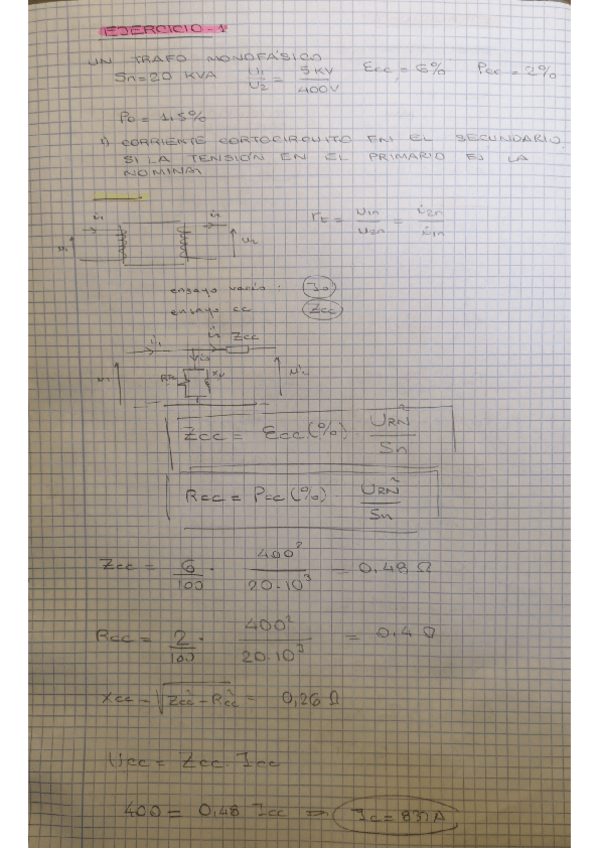 EJERCICIO-1
UN TRAFO MONOFÁSICO
Sn=20 KVA U1/U2 = 5KV/400V Ecc = 6% Pcc = 2%
Po = 1,5%
1) CORRIENTE CORTOCIRCUITO EN EL SECUNDARIO,
SI LA TENSIÓN EN EL PRIMARIO ES LA
NOMINAL
i1
rt = U1n/U2n = i2n/i1n
u1
ensayo vacío : Io
ensayo cc Zcc
Zcc
Zcc = Ecc(%) U2N²/Sn
Rcc = Pcc(%) U2N²/Sn
Zcc = 6/100 · 400²/20·10³ = 0,48 Ω
Rcc = 2/100 · 400²/20·10³ = 0,4 Ω
Xcc = √Zcc²-Rcc² = 0,26 Ω
Ucc = Zcc. Icc
400 = 0,48 Icc ⇒